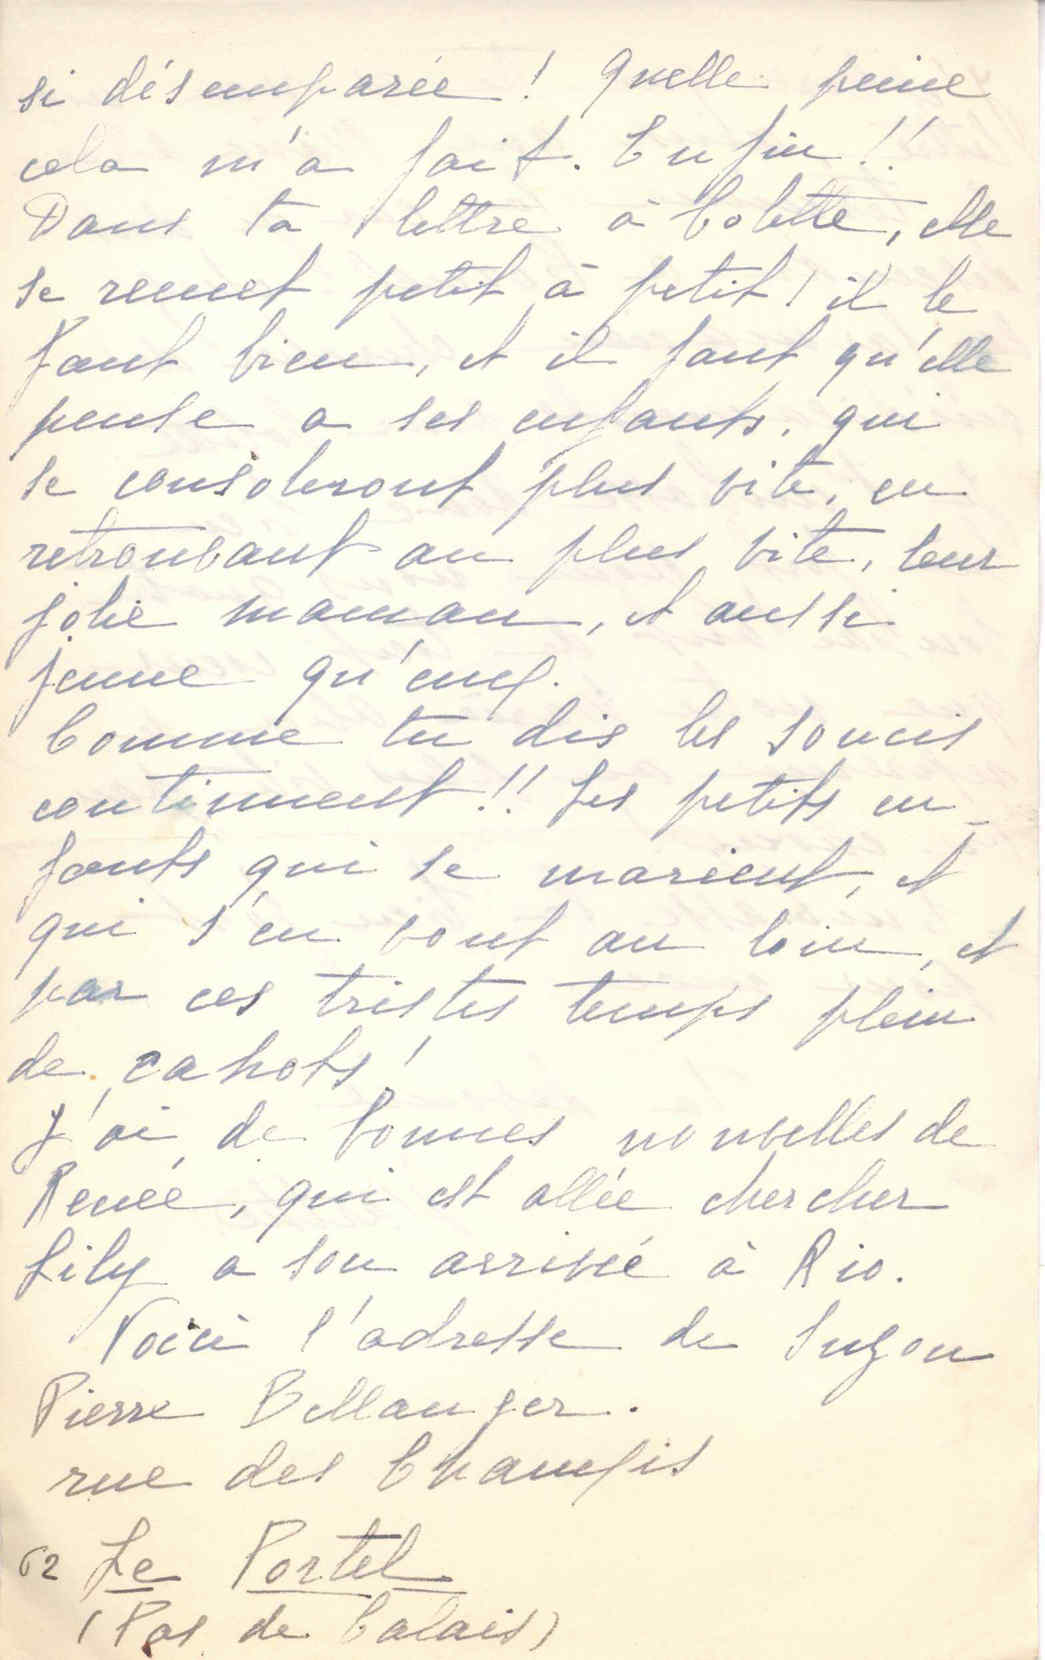 si désemparée ! Quelle peine
cela m'a fait. Enfin !!
Dans ta lettre à Colette, elle
se remet petit à petit ! il le
faut bien, et il faut qu'elle
pense a ses enfants, qui
se consoleront plus vite, en
retrouvant au plus vite, leur
jolie maman, et aussi
jeune qu'eux.
Comme tu dis les soucis
continuent !! Les petits en-
fants qui se marient, et
qui s'en vont au loin, et
par ces tristes temps plein
de cahots !
J'ai de bonnes nouvelles de
Renée, qui est allée chercher
Lily a son arrivée à Rio.
Voici l'adresse de Suzon
Pierre Bellanger.
rue des
62 Le Portel
(Pas de Calais)